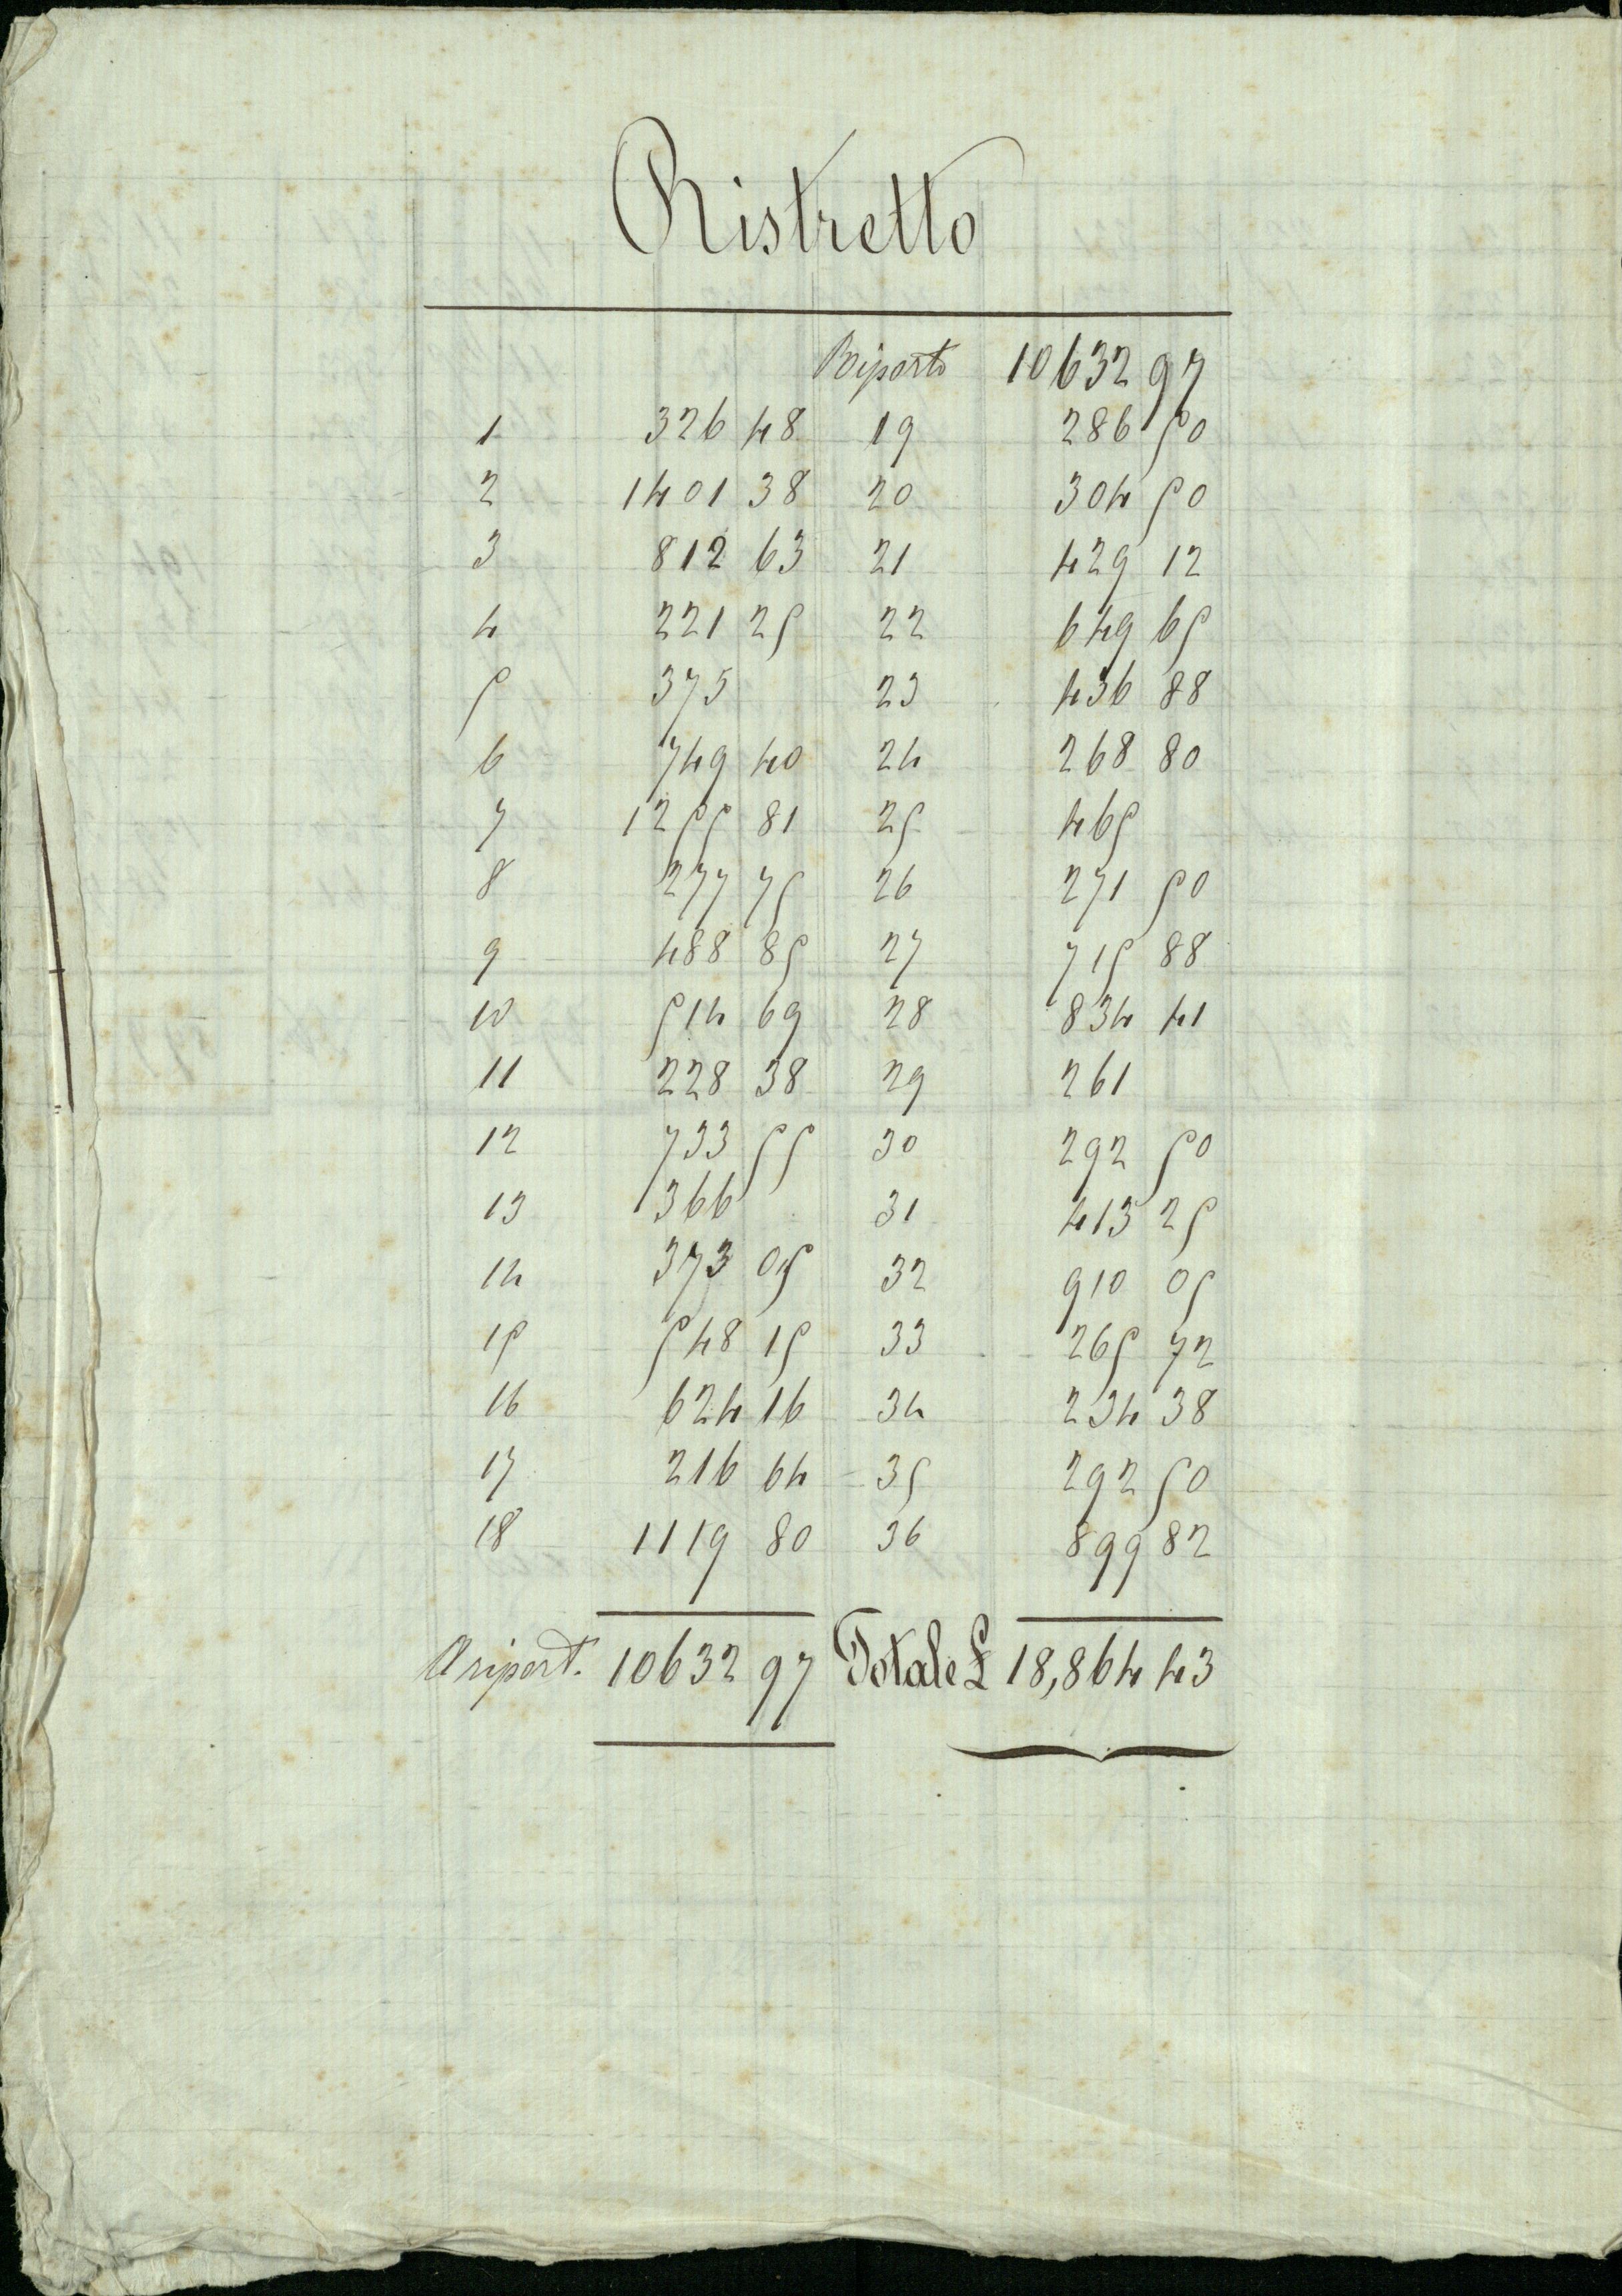 Ristretto
Riporto 10632 97
1 326 48 19 286 50
2 1401 38 20 304 50
3 812 63 21 429 12
4 221 25 22 649 65
5 375 23 436 88
6 749 40 24 268 80
7 1255 81 25 465
8 277 75 26 271 50
9 488 85 27 715 88
10 514 69 28 834 41
11 228 38 29 261
12 733 55 30 292 50
13 366 31 413 25
14 373 05 32 910 05
15 548 15 33 265 72
16 624 16 34 234 38
17 216 64 35 292 50
18 1119 80 36 899 82
A riport. 10632 97 Totale £ 18,864 43